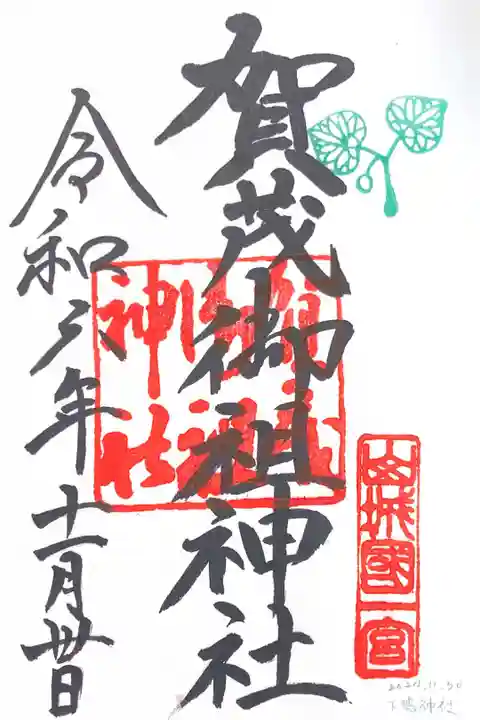 山城國一宮
賀茂御祖神社
賀茂御祖神社
令和六年十一月卅日
2024.11.30
下鴨神社